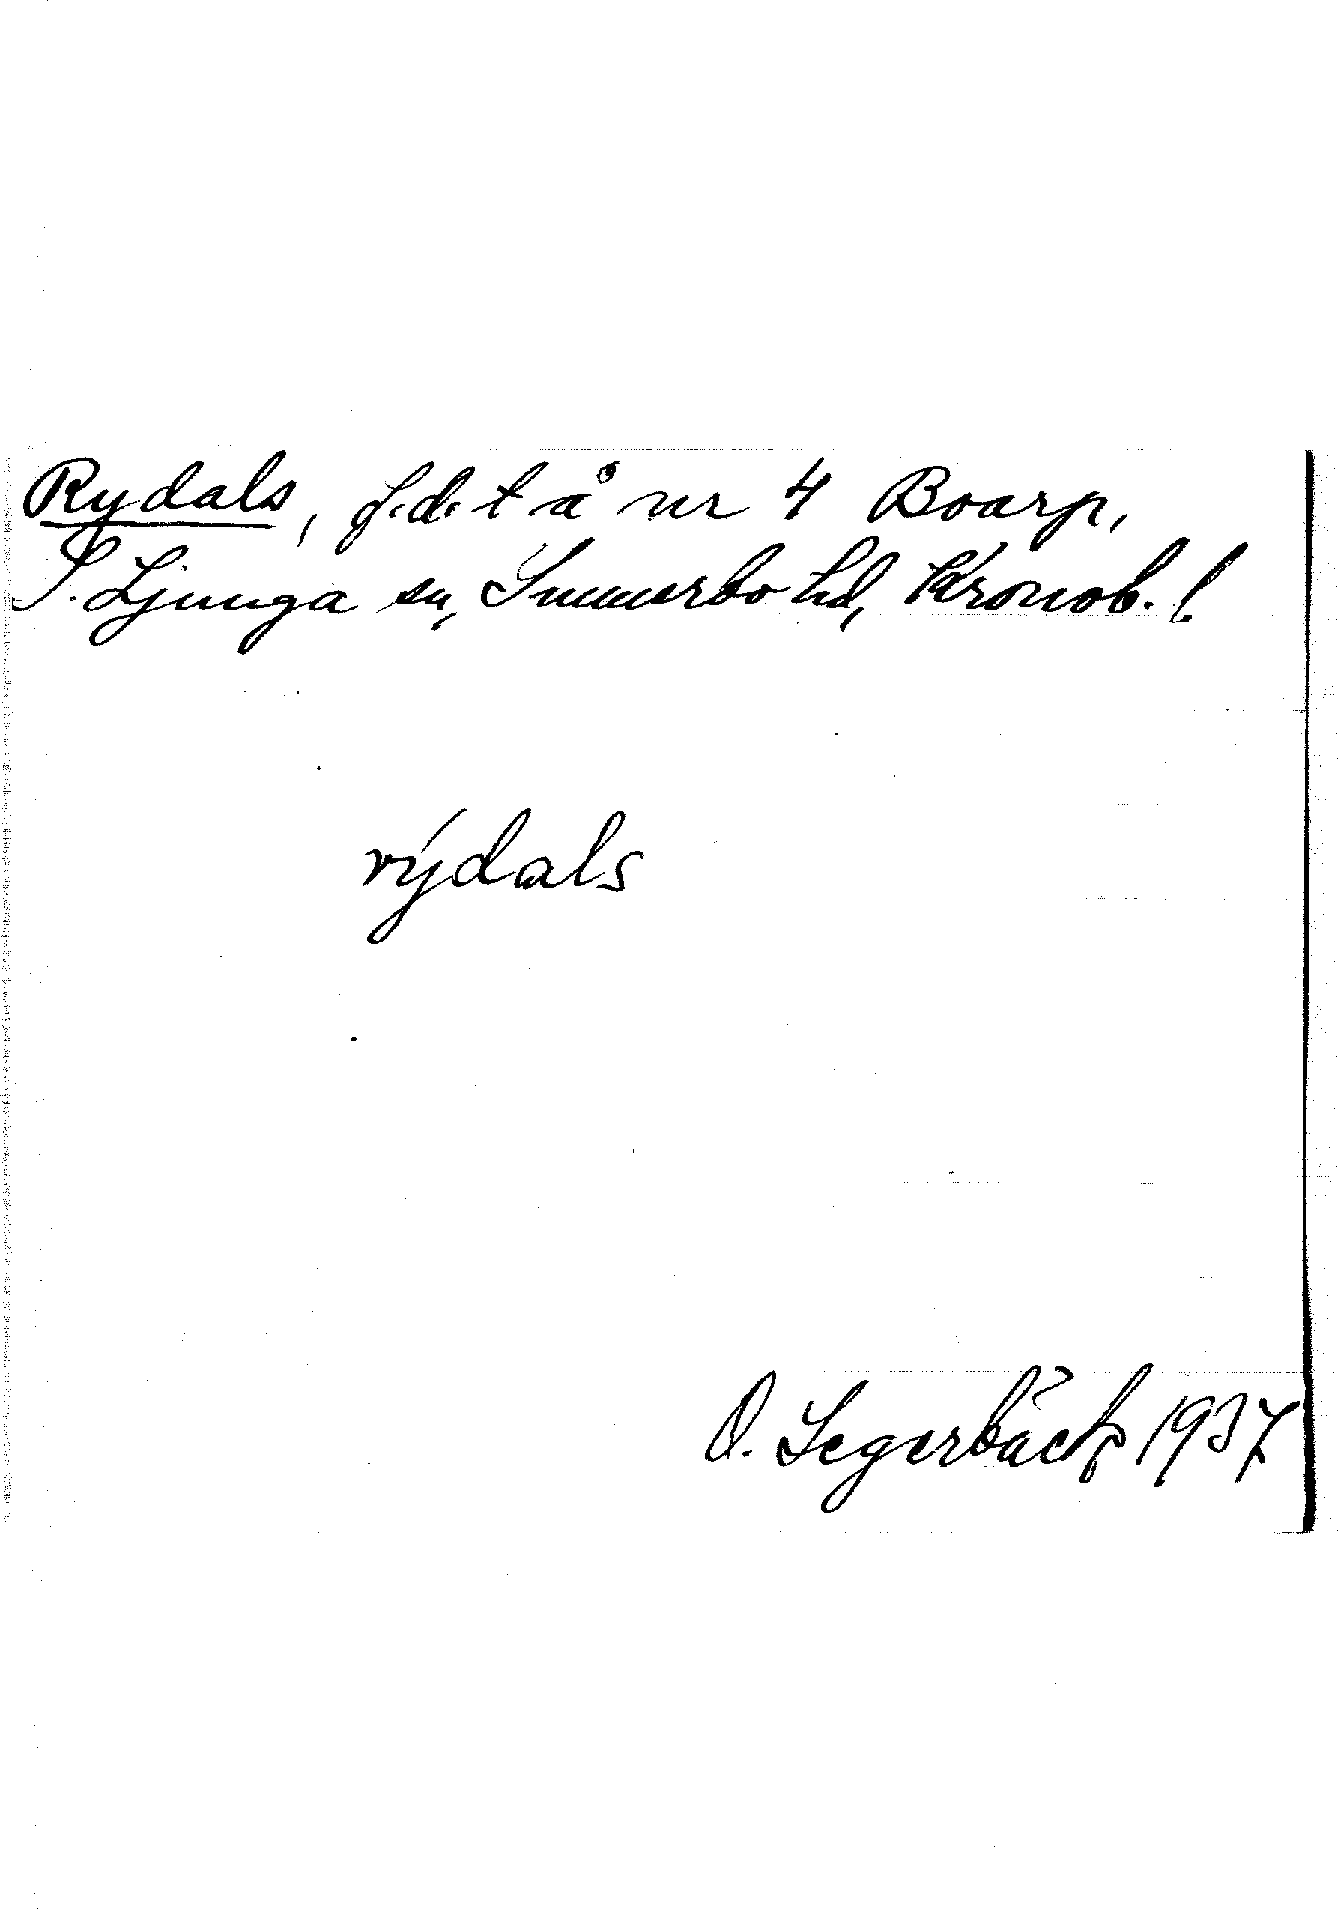 Rydals, f.d. t å nr 4 Boarp,
S. Ljunga sn, Sunnerbo hd, Kronob. l.
rýdals
O. Segerbäck 1937